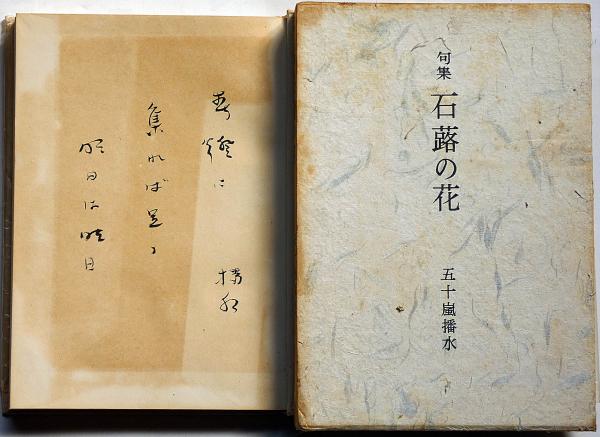 句集 石蕗の花
五十嵐播水
春燈に
集れば足る
明日は明日
播水